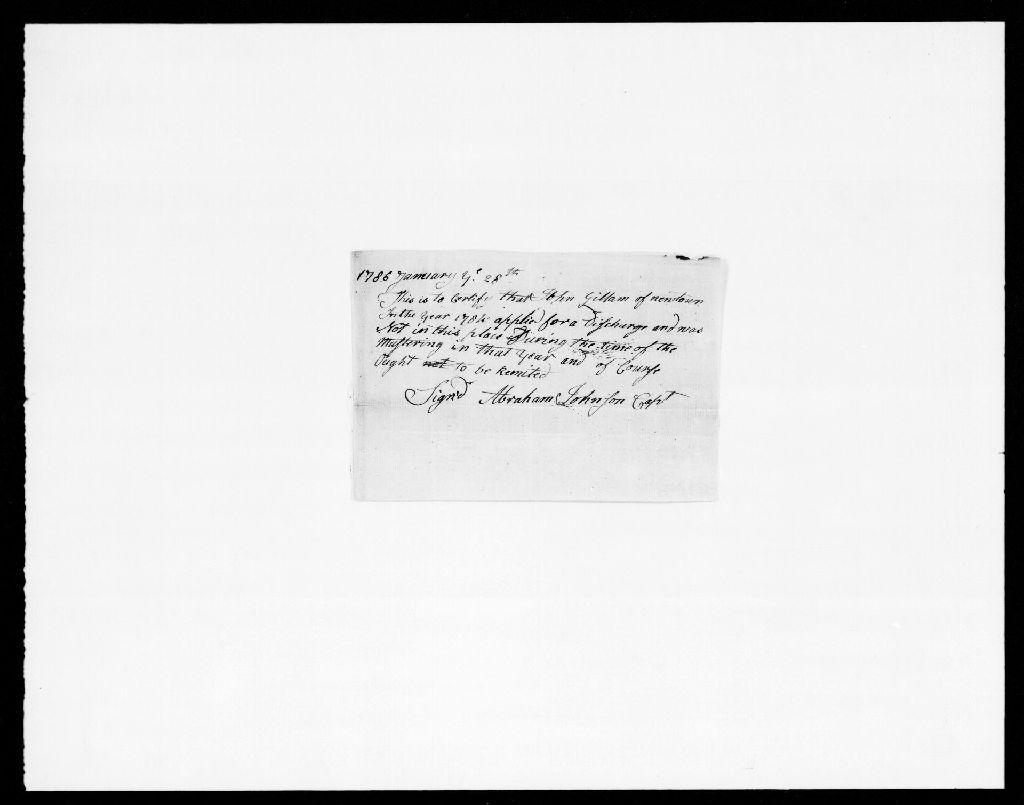 1786 January ye 28th
This is to Certify that John Gillam of newtown
In the Year 1784 applied for a Discharge and was
Not in this place During the time of the
Mustering in that Year and of Course
Ought not to be Remited
Signd Abraham Johnson Capt